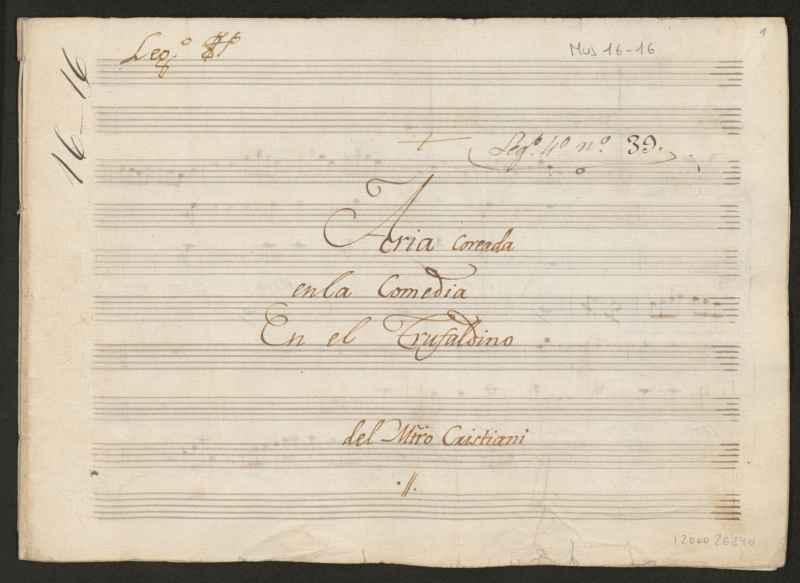 Leg.º
Mus 16-16
1
16-16
Leg.º 4º nº 39.
Aria coreada
en la Comedia
En el Trufaldino
del Mtrō Cristiani
1200026240